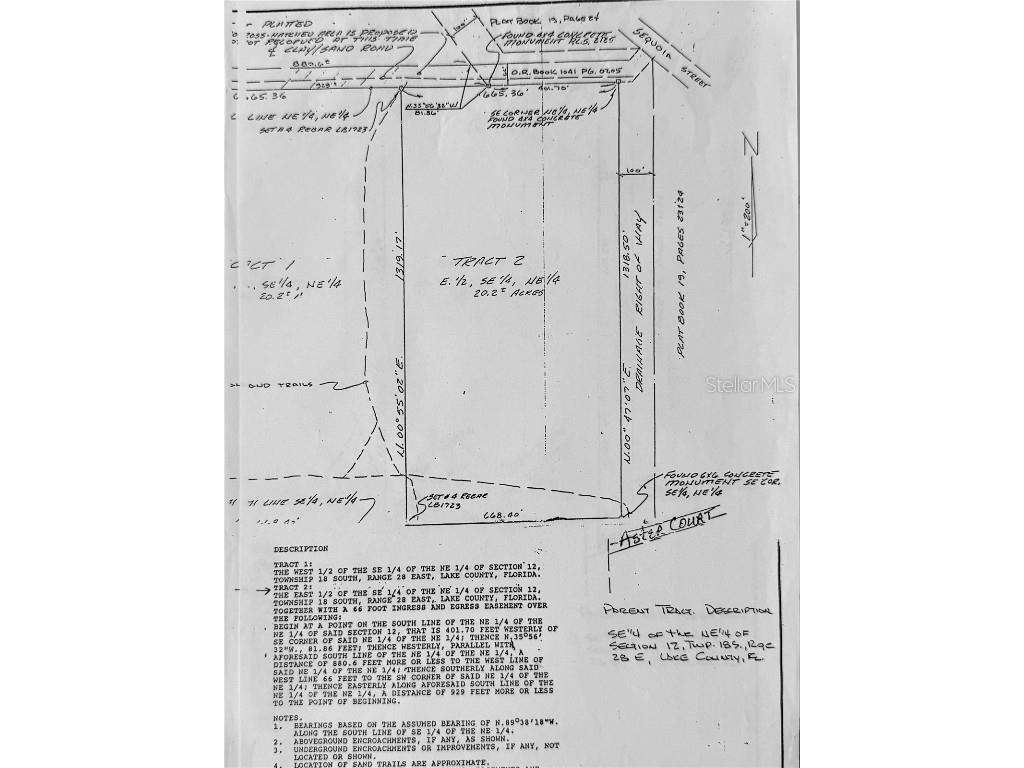 PLATTED
PLAT BOOK 13, PAGE 24
OSS-HATCHED AREA IS PROPOSED
OT RECORDED AT THIS TIME
& CLAY/SAND ROAD
100'
FOUND 4X4 CONCRETE
MONUMENT
SEQUOIA STREET
880.6±
O.R. BOOK 1041 PG. 0205
929'±
665.36
665.36'
401.70'
N.35°56'32"W
81.86'
LINE NE 1/4, NE 1/4
SE CORNER NE 1/4, NE 1/4
FOUND 4X4 CONCRETE
MONUMENT
SET #4 REBAR LB1723
100'
N
1"=200'
1319.17'
N.00°55'02"E.
1318.50'
N.00°47'07"E.
DRAINAGE RIGHT OF WAY
PLAT BOOK 19, PAGES 23&24
CT 1
SE 1/4, NE 1/4
20.2±
TRACT 2
E. 1/2, SE 1/4, NE 1/4
20.2± ACRES
StellarMLS
AND TRAILS
FOUND 6X6 CONCRETE
MONUMENT SE COR.
SE 1/4, NE 1/4
LINE SE 1/4, NE 1/4
SET #4 REBAR
LB1723
668.40'
ASTER COURT
DESCRIPTION
TRACT 1:
THE WEST 1/2 OF THE SE 1/4 OF THE NE 1/4 OF SECTION 12,
TOWNSHIP 18 SOUTH, RANGE 28 EAST, LAKE COUNTY, FLORIDA.
TRACT 2:
THE EAST 1/2 OF THE SE 1/4 OF THE NE 1/4 OF SECTION 12,
TOWNSHIP 18 SOUTH, RANGE 28 EAST, LAKE COUNTY, FLORIDA.
TOGETHER WITH A 66 FOOT INGRESS AND EGRESS EASEMENT OVER
THE FOLLOWING:
BEGIN AT A POINT ON THE SOUTH LINE OF THE NE 1/4 OF THE
NE 1/4 OF SAID SECTION 12, THAT IS 401.70 FEET WESTERLY OF
SE CORNER OF SAID NE 1/4 OF THE NE 1/4; THENCE N.35°56'
32"W., 81.86 FEET; THENCE WESTERLY, PARALLEL WITH
AFORESAID SOUTH LINE OF THE NE 1/4 OF THE NE 1/4, A
DISTANCE OF 880.6 FEET MORE OR LESS TO THE WEST LINE OF
SAID NE 1/4 OF THE NE 1/4; THENCE SOUTHERLY ALONG SAID
WEST LINE 66 FEET TO THE SW CORNER OF SAID NE 1/4 OF THE
NE 1/4; THENCE EASTERLY ALONG AFORESAID SOUTH LINE OF THE
NE 1/4 OF THE NE 1/4, A DISTANCE OF 929 FEET MORE OR LESS
TO THE POINT OF BEGINNING.
PARENT TRACT DESCRIPTION
SE 1/4 OF the NE 1/4 OF
SECTION 12, TWP. 18S., RGE
28 E, LAKE COUNTY, FL
NOTES.
1. BEARINGS BASED ON THE ASSUMED BEARING OF N.89°38'18"W.
ALONG THE SOUTH LINE OF SE 1/4 OF THE NE 1/4.
2. ABOVEGROUND ENCROACHMENTS, IF ANY, AS SHOWN.
3. UNDERGROUND ENCROACHMENTS OR IMPROVEMENTS, IF ANY, NOT
LOCATED OR SHOWN.
4. LOCATION OF SAND TRAILS ARE APPROXIMATE.